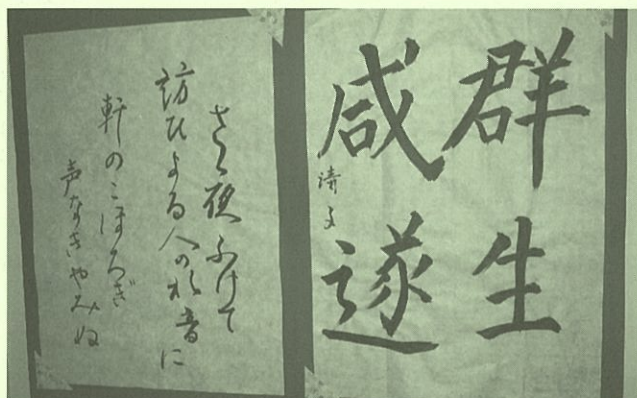 群生
咸遂
さ夜ふけて
訪ひよる人の水音に
軒のこほろぎ
声なきやみぬ